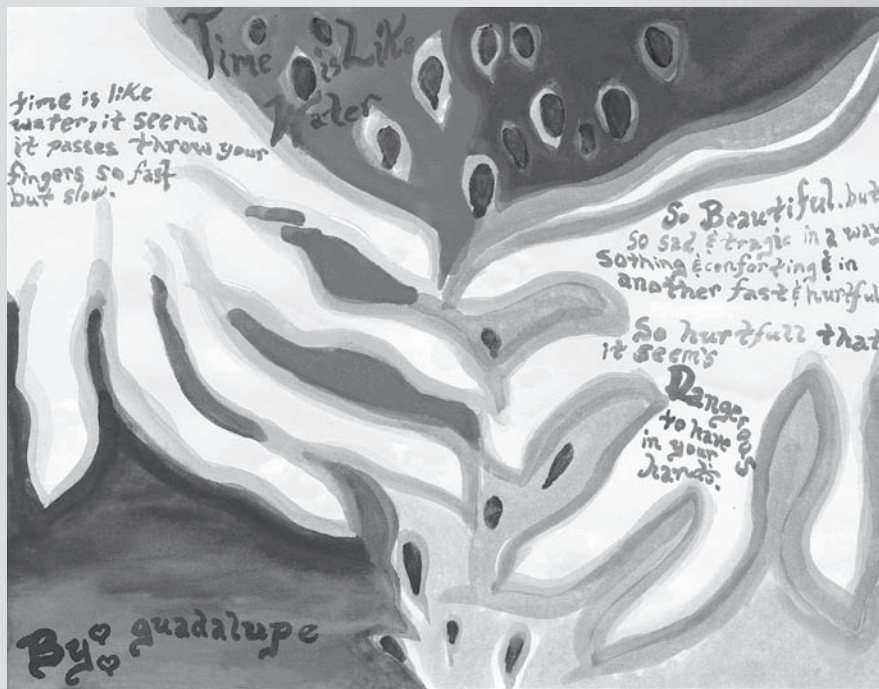 Time is Like
Water
time is like
water, it seem's
it passes throw your
fingers so fast
but slow.
So Beautiful. but
so sad & tragic in a way
sothing & conforting & in
another fast & hurtful
So hurtfull that
it seem's
Dangerous
to have
in your
hands.
By: guadalupe